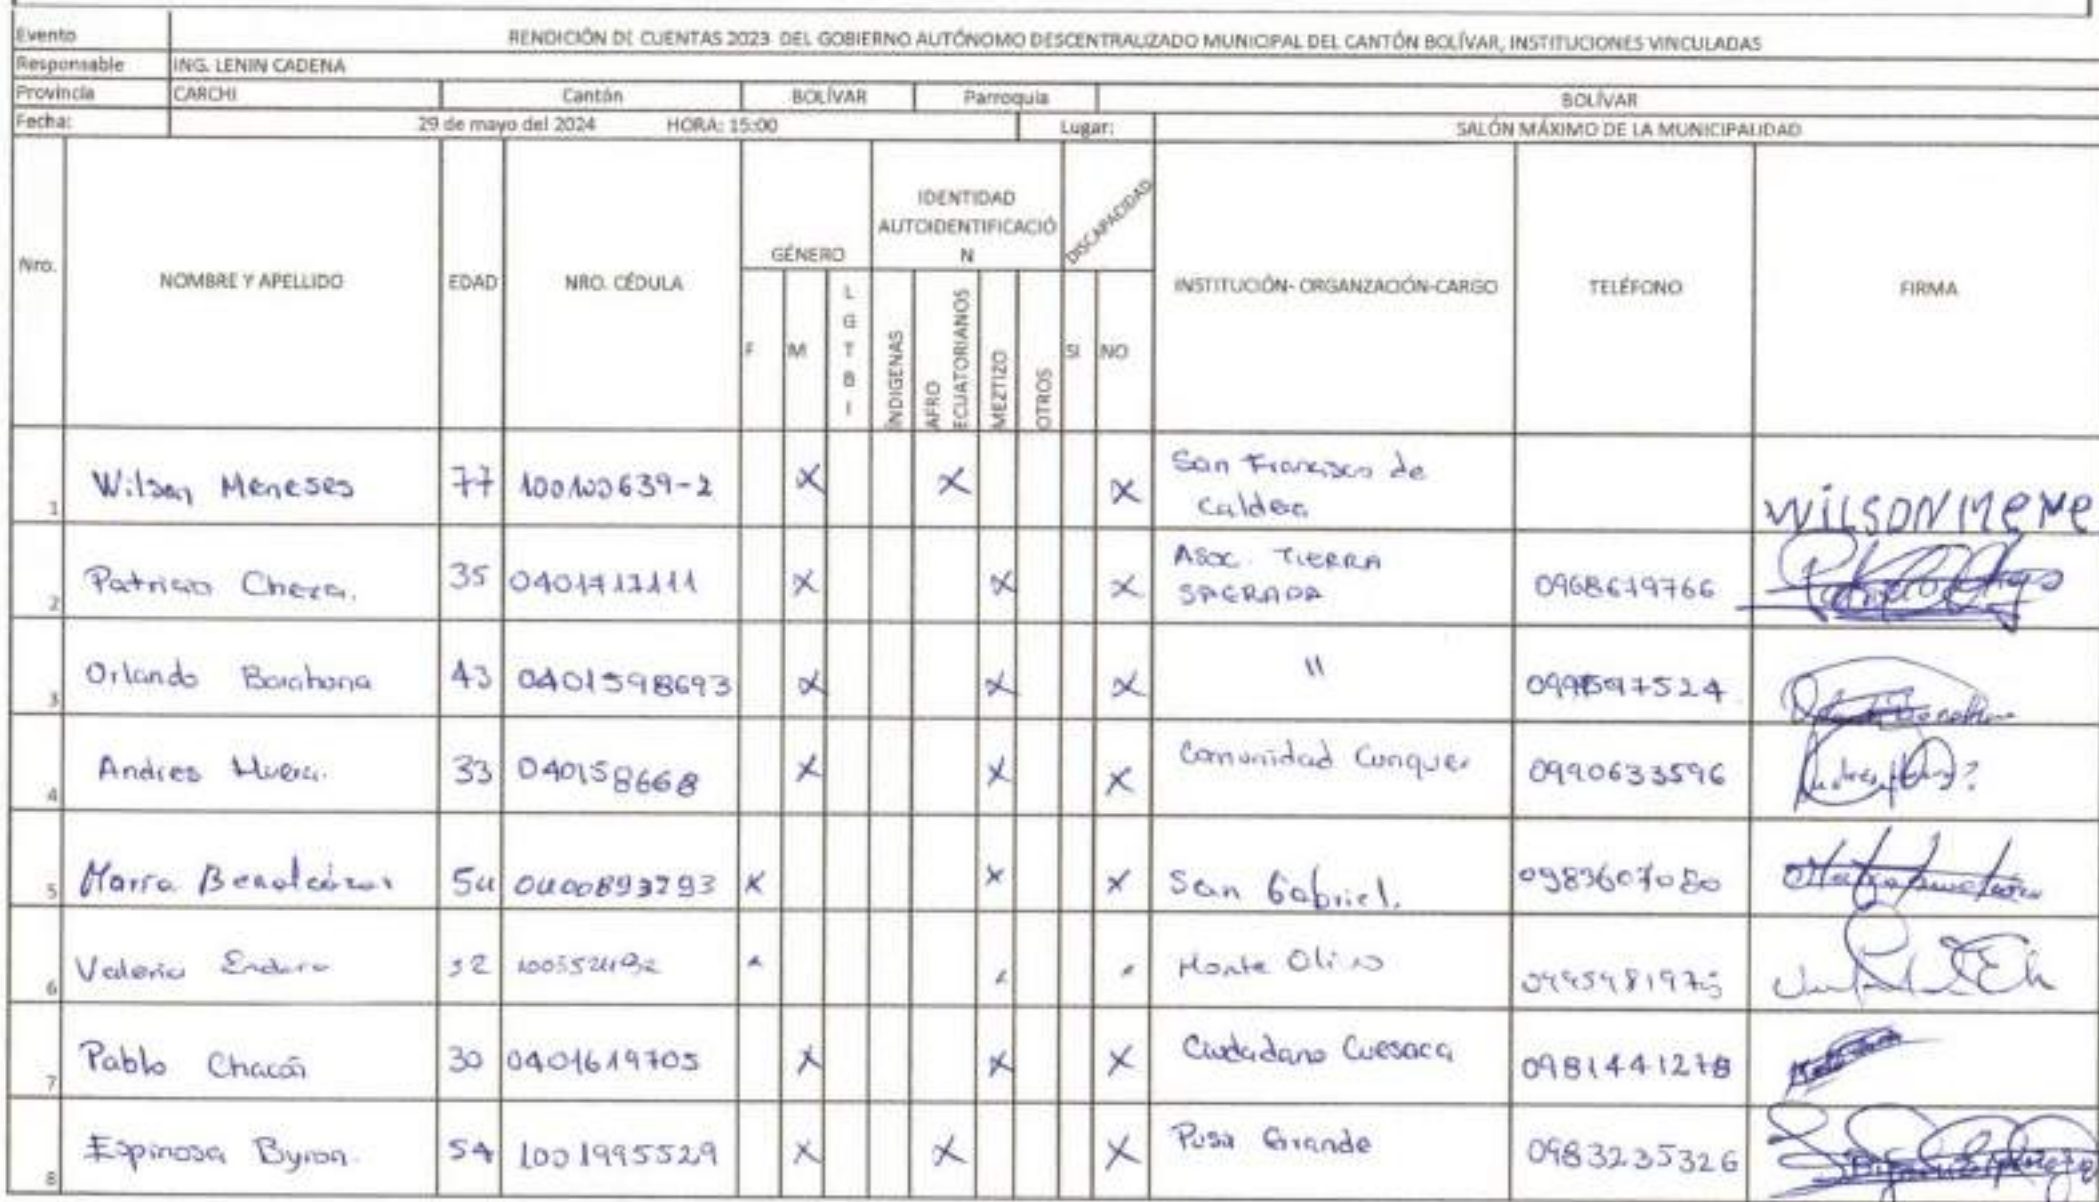 Evento RENDICIÓN DE CUENTAS 2023 DEL GOBIERNO AUTÓNOMO DESCENTRALIZADO MUNICIPAL DEL CANTÓN BOLÍVAR, INSTITUCIONES VINCULADAS
Responsable ING. LENIN CADENA
Provincia CARCHI Cantón BOLÍVAR Parroquia BOLÍVAR
Fecha: 29 de mayo del 2024 HORA: 15:00 Lugar: SALÓN MÁXIMO DE LA MUNICIPALIDAD
Nro. NOMBRE Y APELLIDO EDAD NRO. CÉDULA GÉNERO IDENTIDAD AUTOIDENTIFICACIÓN DISCAPACIDAD INSTITUCIÓN- ORGANZACIÓN-CARGO TELÉFONO FIRMA
F M LGTBI ÍNDIGENAS AFRO ECUATORIANOS MEZTIZO OTROS SI NO
1 Wilson Meneses 77 100100639-2 X X X San Francisco de Caldera WILSON MENE
2 Patricio Cheza. 35 X X X Asoc. TIERRA SAGRADA 0968619766
3 Orlando Barahona 43 0401598693 X X X "
4 Andres Huera. 33 040158668 X X X Comunidad Cunquer 0990633596
5 María Benalcázar 54 0400893293 X X X San Gabriel. 0983607080
6 Valeria 32 Monte Olivo
7 Pablo Chacón 30 0401619705 X X X Ciudadano Cuesaca 0981441278
8 Espinosa Byron. 54 1001995529 X X X Pusir Grande 0983235326